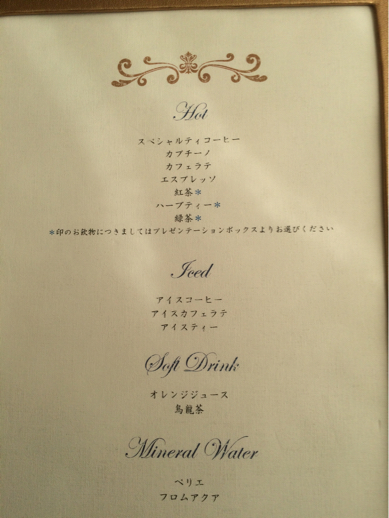 Hot
スペシャルティコーヒー
カプチーノ
カフェラテ
エスプレッソ
紅茶＊
ハーブティー＊
緑茶＊
＊印のお飲物につきましてはプレゼンテーションボックスよりお選びください
Iced
アイスコーヒー
アイスカフェラテ
アイスティー
Soft Drink
オレンジジュース
烏龍茶
Mineral Water
ペリエ
フロムアクア